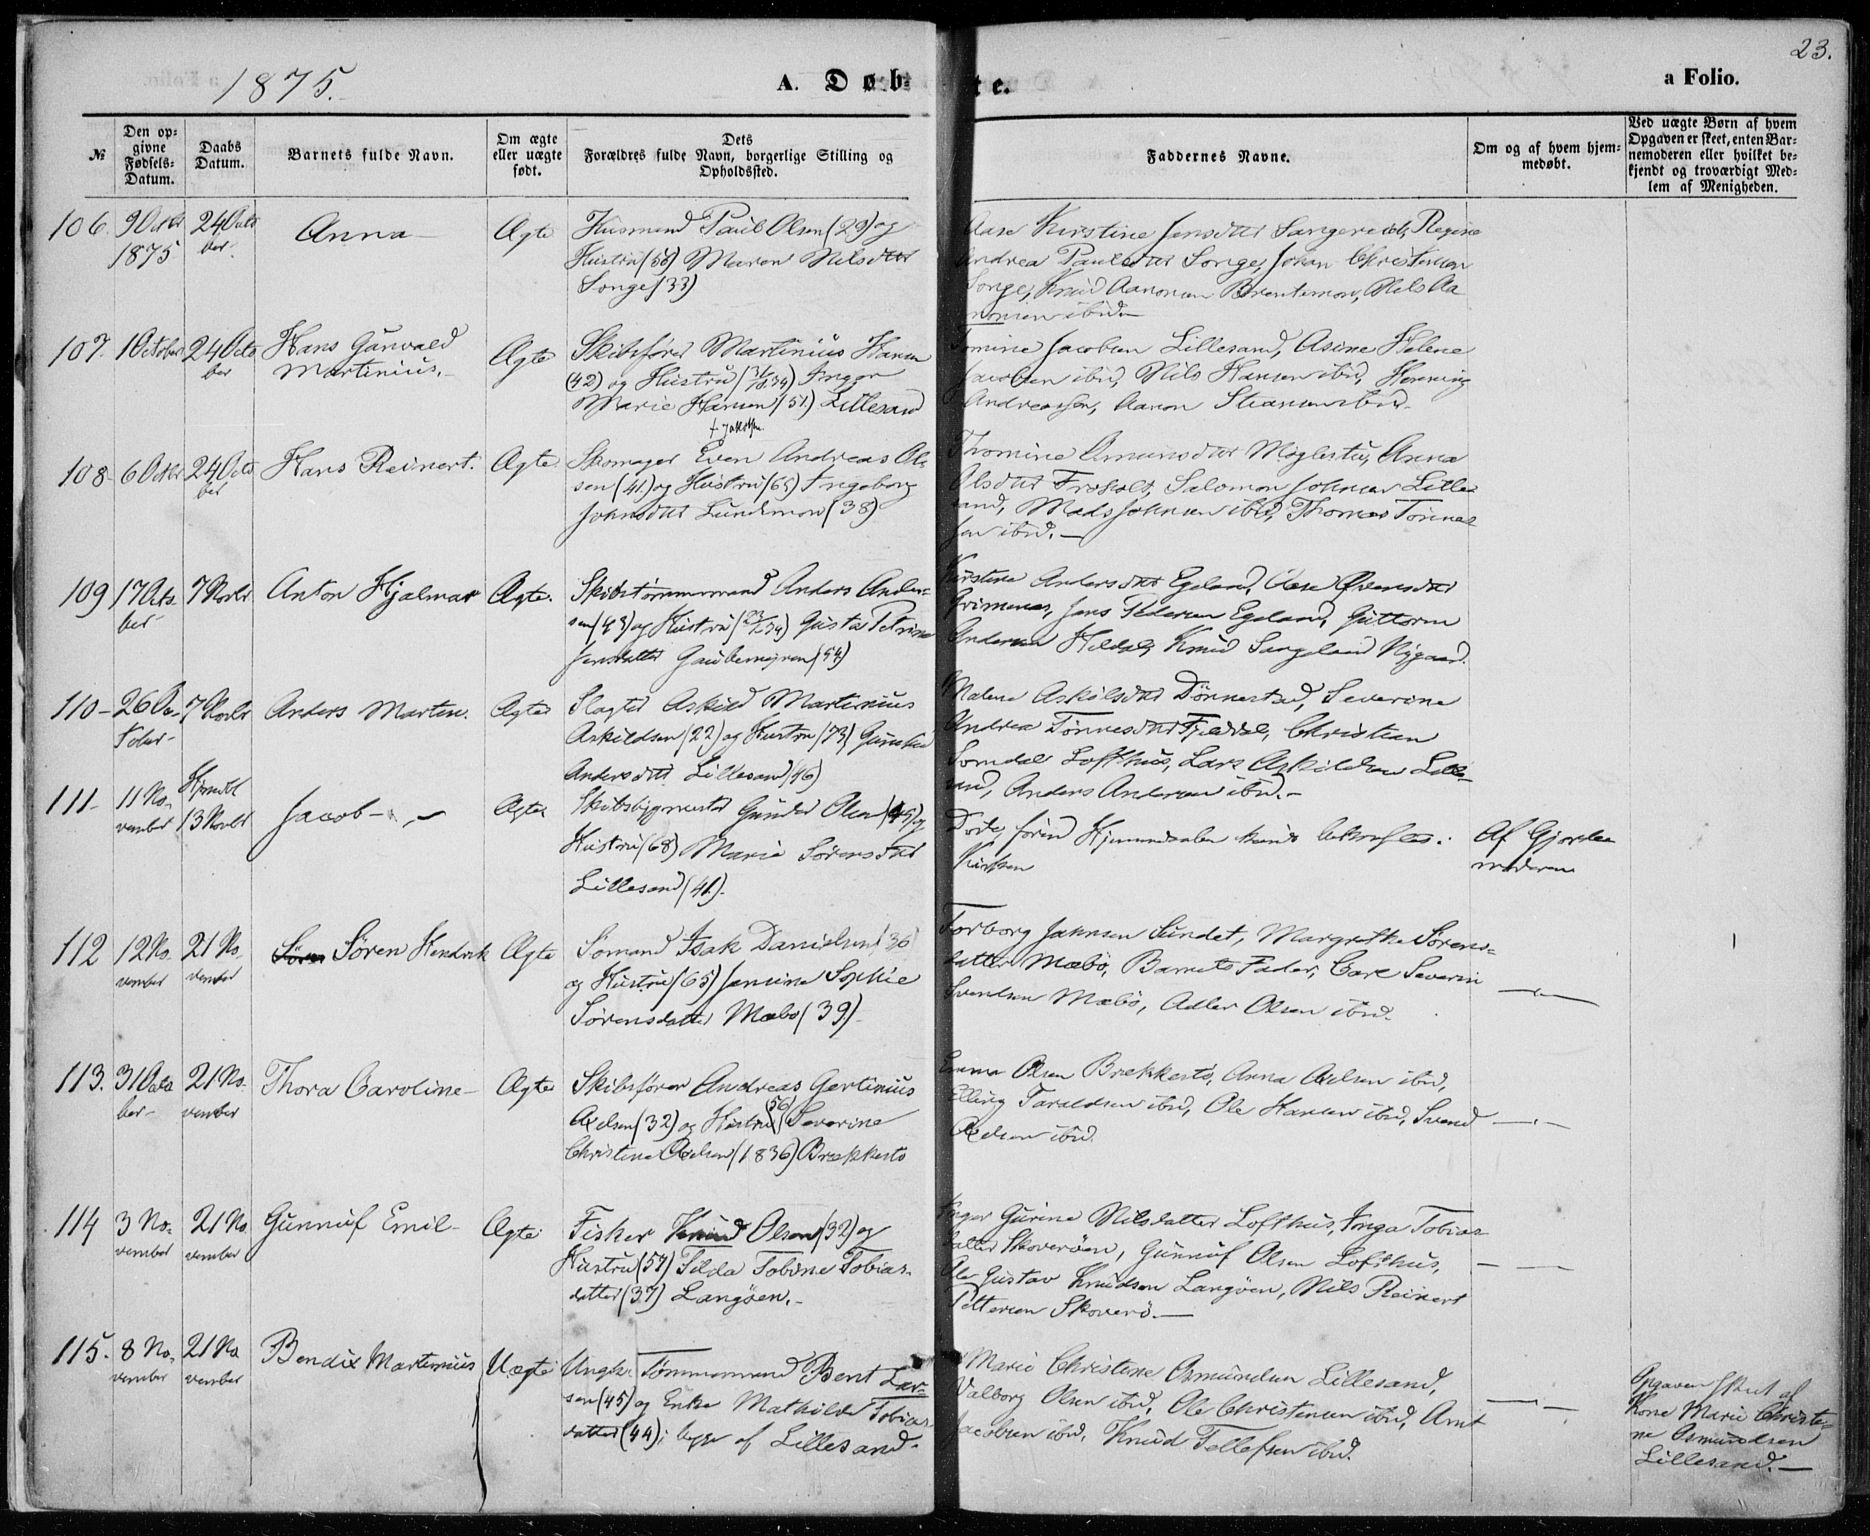 23.
1875.
A. Døbte.
a Folio.
№
Den op-
givne
Fødsels-
Datum.
Daabs
Datum.
Barnets fulde Navn.
Om ægte
eller uægte
født.
Dets
Forældres fulde Navn, borgerlige Stilling og
Opholdssted.
Faddernes Navne.
Om og af hvem hjem-
medøbt.
Ved uægte Børn af hvem
Opgaven er skeet, enten Bar-
nemoderen eller hvilket be-
kjendt og troværdigt Med-
lem af Menigheden.
106.
9 Octbr
1875
24 Octo
ber.
Anna
Ægte
Husmand Paul Olsen (29) og
Hustru Maren Nilsdttr
Songe (33)
Aase Kirstine Jensdttr Sangereid, Regine
Andrea Paulsdttr Songe, Johan Christensen
Songe, Knud Aanonsen Brentemoen, Nils Aa
nonsen ibid.
107.
1 October
24 Octo
ber
Hans Gunvald
Martinius.
Ægte
Skibsfører Martinius Hansen
(42) og Hustru Inger
Marie Hansen (51) Lillesand
f. Jakobsen
Tomine Jacobsen Lillesand, Asine Helene
Jacobsen ibid, Nils Hansen ibid, Henning
Andreassen, Aanon ibid.
108
6 Octbr
24 Octo
ber
Hans Reinert.
Ægte
Skomager Even Andreas Ol-
sen (41) og Hustru (65) Ingeborg
Johnsdttr Lundemoen (38)
Thomine Osmunsdttr Møglestu, Anna
Olsdttr Frøholt, Salomon Johnsen Lille
sand, Mads Johnsen ibid, Thomas Tønnes
sen ibid.
109
17 Octo
ber
7 Novbr
Anton Hjalmar
Ægte.
Skibstømmermand Anders Ander-
sen (43) og Hustru Gusta Petrine
Jensdatter (54)
Kirstine Andersdttr Egeland, Aase Evensdttr
Grimenes, Jens Pedersen Egeland, Guttorm
Andersen Heldal, Knud Sangeland Nygaard.
110
26 Oc-
tober
7 Novbr
Anders Marten.
Ægte
Slagter Askild Martinius
Askildsen (22) og Hustru (73) Gunhild
Andersdttr Lillesand (46)
Malene Askilsdttr Dønnestad, Severine
Andrea Tønnesdttr Fjeldal, Christian
Somdal Lofthus, Lars Askildsen Lille-
sand, Anders Andersen ibid.
111.
11 No-
vember
Hjemdbt
13 Novbr
Jacob
Ægte
Skibsbygmester Gunder Olsen (45) og
Hustru (68) Marie Sørensdttr
Lillesand (41).
Døde, førend Hjemmedaaben kunde bekræftes i
Kirken
Af Gjorde
moderen
112
12 No-
vember
21 No-
vember
Søren Søren Hendrik
Ægte
Sømand Isak Danielsen (36)
og Hustru (65) Jensine Sophie
Sørensdatter Mæbø (39)
Torborg Jahnsen Sundet, Margrethe Sørens-
datter Mæbø, Barnets Fader, Carl Severin
Svendsen Mæbø, Adler Olsen ibid.
113.
31 Octo
ber
21 No-
vember
Thora Caroline
Ægte
Skibsfører Andreas Gertinius
Axelsen (32) og Hustru (56) Severine
Christine Axelsen (1836) Brækkestø
Emma Olsen Brekkestø, Anna Axelsen ibid,
Elling Taraldsen ibid, Ole Hansen ibid, Svend
Axelsen ibid
114
3 No-
vember
21 No
vember
Gunnuf Emil
Ægte
Fisker Knud Olsen (32) og
Hustru (57) Tilda Tobine Tobias-
datter (37) Langøen.
Inger Gurine Nilsdatter Lofthus, Inga Tobias
datter Skoverøen, Gunnuf Olsen Lofthus,
Ole Gustav Knudsen Langøen, Nils Reinert
Pettersen Skoverø.
115.
8 No-
vember
21 No
vember
Bendix Martinius
Uægte
Ungk. Tømmermand Bent Lar-
sen (45) og Enke Mathilde Tobias-
datter (44), begge af Lillesand.
Marie Christine Osmundsen Lillesand,
Valborg Olsen ibid, Ole Christensen ibid, Arnt
Jacobsen ibid, Knud Tellefsen ibid.
Opgaven skeet af
Kone Marie Christi-
ne Osmundsen
Lillesand.